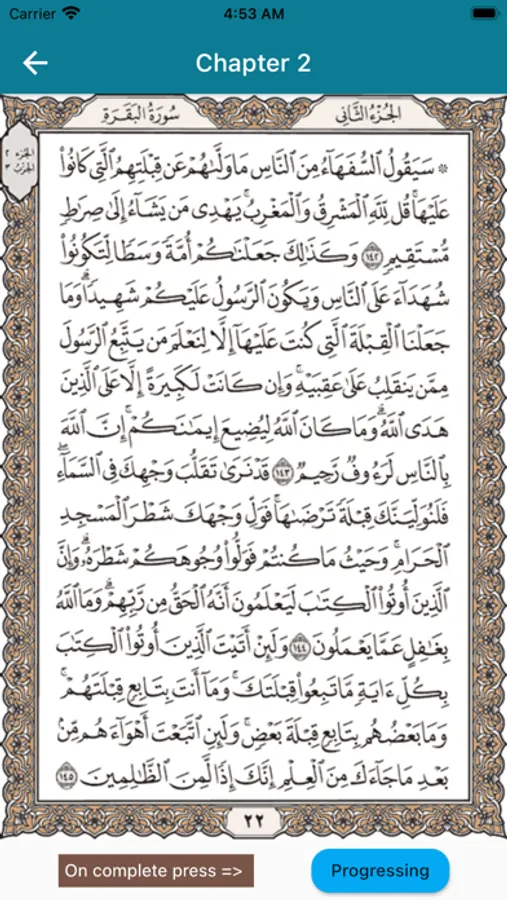 Carrier 4:53 AM
Chapter 2
سُورَةُ البَقَرَةِ الجُزْءُ الثَّانِي
الجزء ٢
الحزب ٣
۞ سَيَقُولُ ٱلسُّفَهَآءُ مِنَ ٱلنَّاسِ مَا وَلَّىٰهُمْ عَن قِبْلَتِهِمُ ٱلَّتِى كَانُوا۟
عَلَيْهَا ۚ قُل لِّلَّهِ ٱلْمَشْرِقُ وَٱلْمَغْرِبُ ۚ يَهْدِى مَن يَشَآءُ إِلَىٰ صِرَٰطٍ
مُّسْتَقِيمٍ ١٤٢ وَكَذَٰلِكَ جَعَلْنَٰكُمْ أُمَّةً وَسَطًا لِّتَكُونُوا۟
شُهَدَآءَ عَلَى ٱلنَّاسِ وَيَكُونَ ٱلرَّسُولُ عَلَيْكُمْ شَهِيدًا ۗ وَمَا
جَعَلْنَا ٱلْقِبْلَةَ ٱلَّتِى كُنتَ عَلَيْهَآ إِلَّا لِنَعْلَمَ مَن يَتَّبِعُ ٱلرَّسُولَ
مِمَّن يَنقَلِبُ عَلَىٰ عَقِبَيْهِ ۚ وَإِن كَانَتْ لَكَبِيرَةً إِلَّا عَلَى ٱلَّذِينَ
هَدَى ٱللَّهُ ۗ وَمَا كَانَ ٱللَّهُ لِيُضِيعَ إِيمَٰنَكُمْ ۚ إِنَّ ٱللَّهَ
بِٱلنَّاسِ لَرَءُوفٌ رَّحِيمٌ ١٤٣ قَدْ نَرَىٰ تَقَلُّبَ وَجْهِكَ فِى ٱلسَّمَآءِ ۖ
فَلَنُوَلِّيَنَّكَ قِبْلَةً تَرْضَىٰهَا ۚ فَوَلِّ وَجْهَكَ شَطْرَ ٱلْمَسْجِدِ
ٱلْحَرَامِ ۚ وَحَيْثُ مَا كُنتُمْ فَوَلُّوا۟ وُجُوهَكُمْ شَطْرَهُۥ ۗ وَإِنَّ
ٱلَّذِينَ أُوتُوا۟ ٱلْكِتَٰبَ لَيَعْلَمُونَ أَنَّهُ ٱلْحَقُّ مِن رَّبِّهِمْ ۗ وَمَا ٱللَّهُ
بِغَٰفِلٍ عَمَّا يَعْمَلُونَ ١٤٤ وَلَئِنْ أَتَيْتَ ٱلَّذِينَ أُوتُوا۟ ٱلْكِتَٰبَ
بِكُلِّ ءَايَةٍ مَّا تَبِعُوا۟ قِبْلَتَكَ ۚ وَمَآ أَنتَ بِتَابِعٍ قِبْلَتَهُمْ ۚ
وَمَا بَعْضُهُم بِتَابِعٍ قِبْلَةَ بَعْضٍ ۚ وَلَئِنِ ٱتَّبَعْتَ أَهْوَآءَهُم مِّنۢ
بَعْدِ مَا جَآءَكَ مِنَ ٱلْعِلْمِ ۙ إِنَّكَ إِذًا لَّمِنَ ٱلظَّٰلِمِينَ ١٤٥
٢٢
On complete press => Progressing